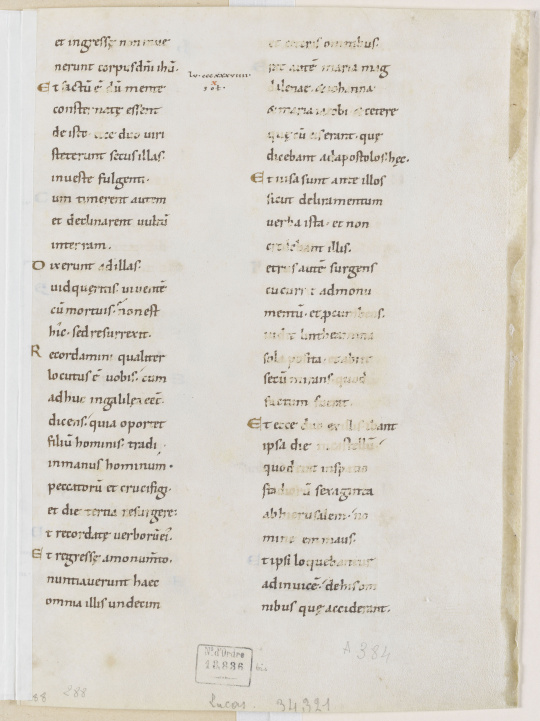 et ingressę non inve
nerunt corpus dn̄i ih̄u.
Et factū ē. dū mente
consternatę essent
de isto ecce duo viri
steterunt secus illas.
in veste fulgenti.
um timerent autem
et declinarent vultū
in terram.
Dixerunt ad illas.
uid queritis viventē
cū mortuis. non est
hic. sed resurrexit.
Recordamini qualiter
locutus ē vobis. cum
adhuc in galilea eēt.
dicens. quia oportet
filiū hominis tradi
in manus hominum.
peccatorū et crucifigi.
et die tertia resurgere.
t recordatę verborū ei.
Et regressę a monum̄to.
nuntiaverunt haec
omnia illis undecim
lu. cccxxxviiii.
x
et ceteris omnibus.
autē maria mag
dalenae iohanna.
& maria iacobi & cetere
quę cū erant. quę
dicebant ad apostolos hęc.
Et visa sunt ante illos
sicut deliramentum
verba ista. et non
credebant illis.
etrus autē surgens
cucurrit ad monu
mentū. et procumbens.
vidit linteamina
sola posita. et abiit
secū mirans quod
factum fuerat.
Et ecce duo ex illis ibant
ipsa die in castellū
quod erat in spatio
stadiorū sexaginta
ab hierusalem. no
mine emmaus.
t ipsi loquebantur
ad invicē. de his om
nibus quę acciderant.
N° d'Ordre
18.836
bis
A 384
88 288
Lucas 34321